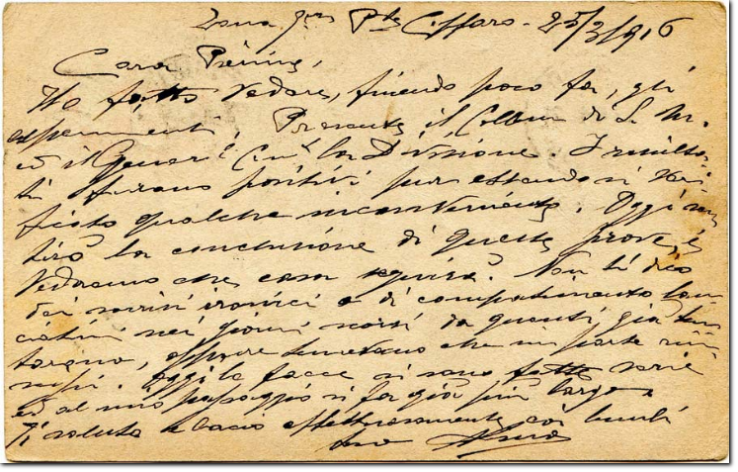 Zona guerra P.te Caffaro - 25/3/916
Cara
Ho fatto vedere, finendo poco fa, gli
esperimenti. Presente il di S. M.
ed il Gener. la Divisione. I risulta-
ti furono positivi pur essendosi veri-
ficato qualche inconveniente. Oggi
tirò la conclusione di queste prove, e
vedremo che cosa seguirà? Non ti dico
dei sorrisi ironici e di compatimento lan-
ciatimi nei giorni scorsi da quanti già
, oppure temevano che in parte riu-
scissi. Oggi le facce si sono fatte serie
ed al mio passaggio si fa già più largo.
Ti saluto e bacio affettuosamente coi bimbi
tuo